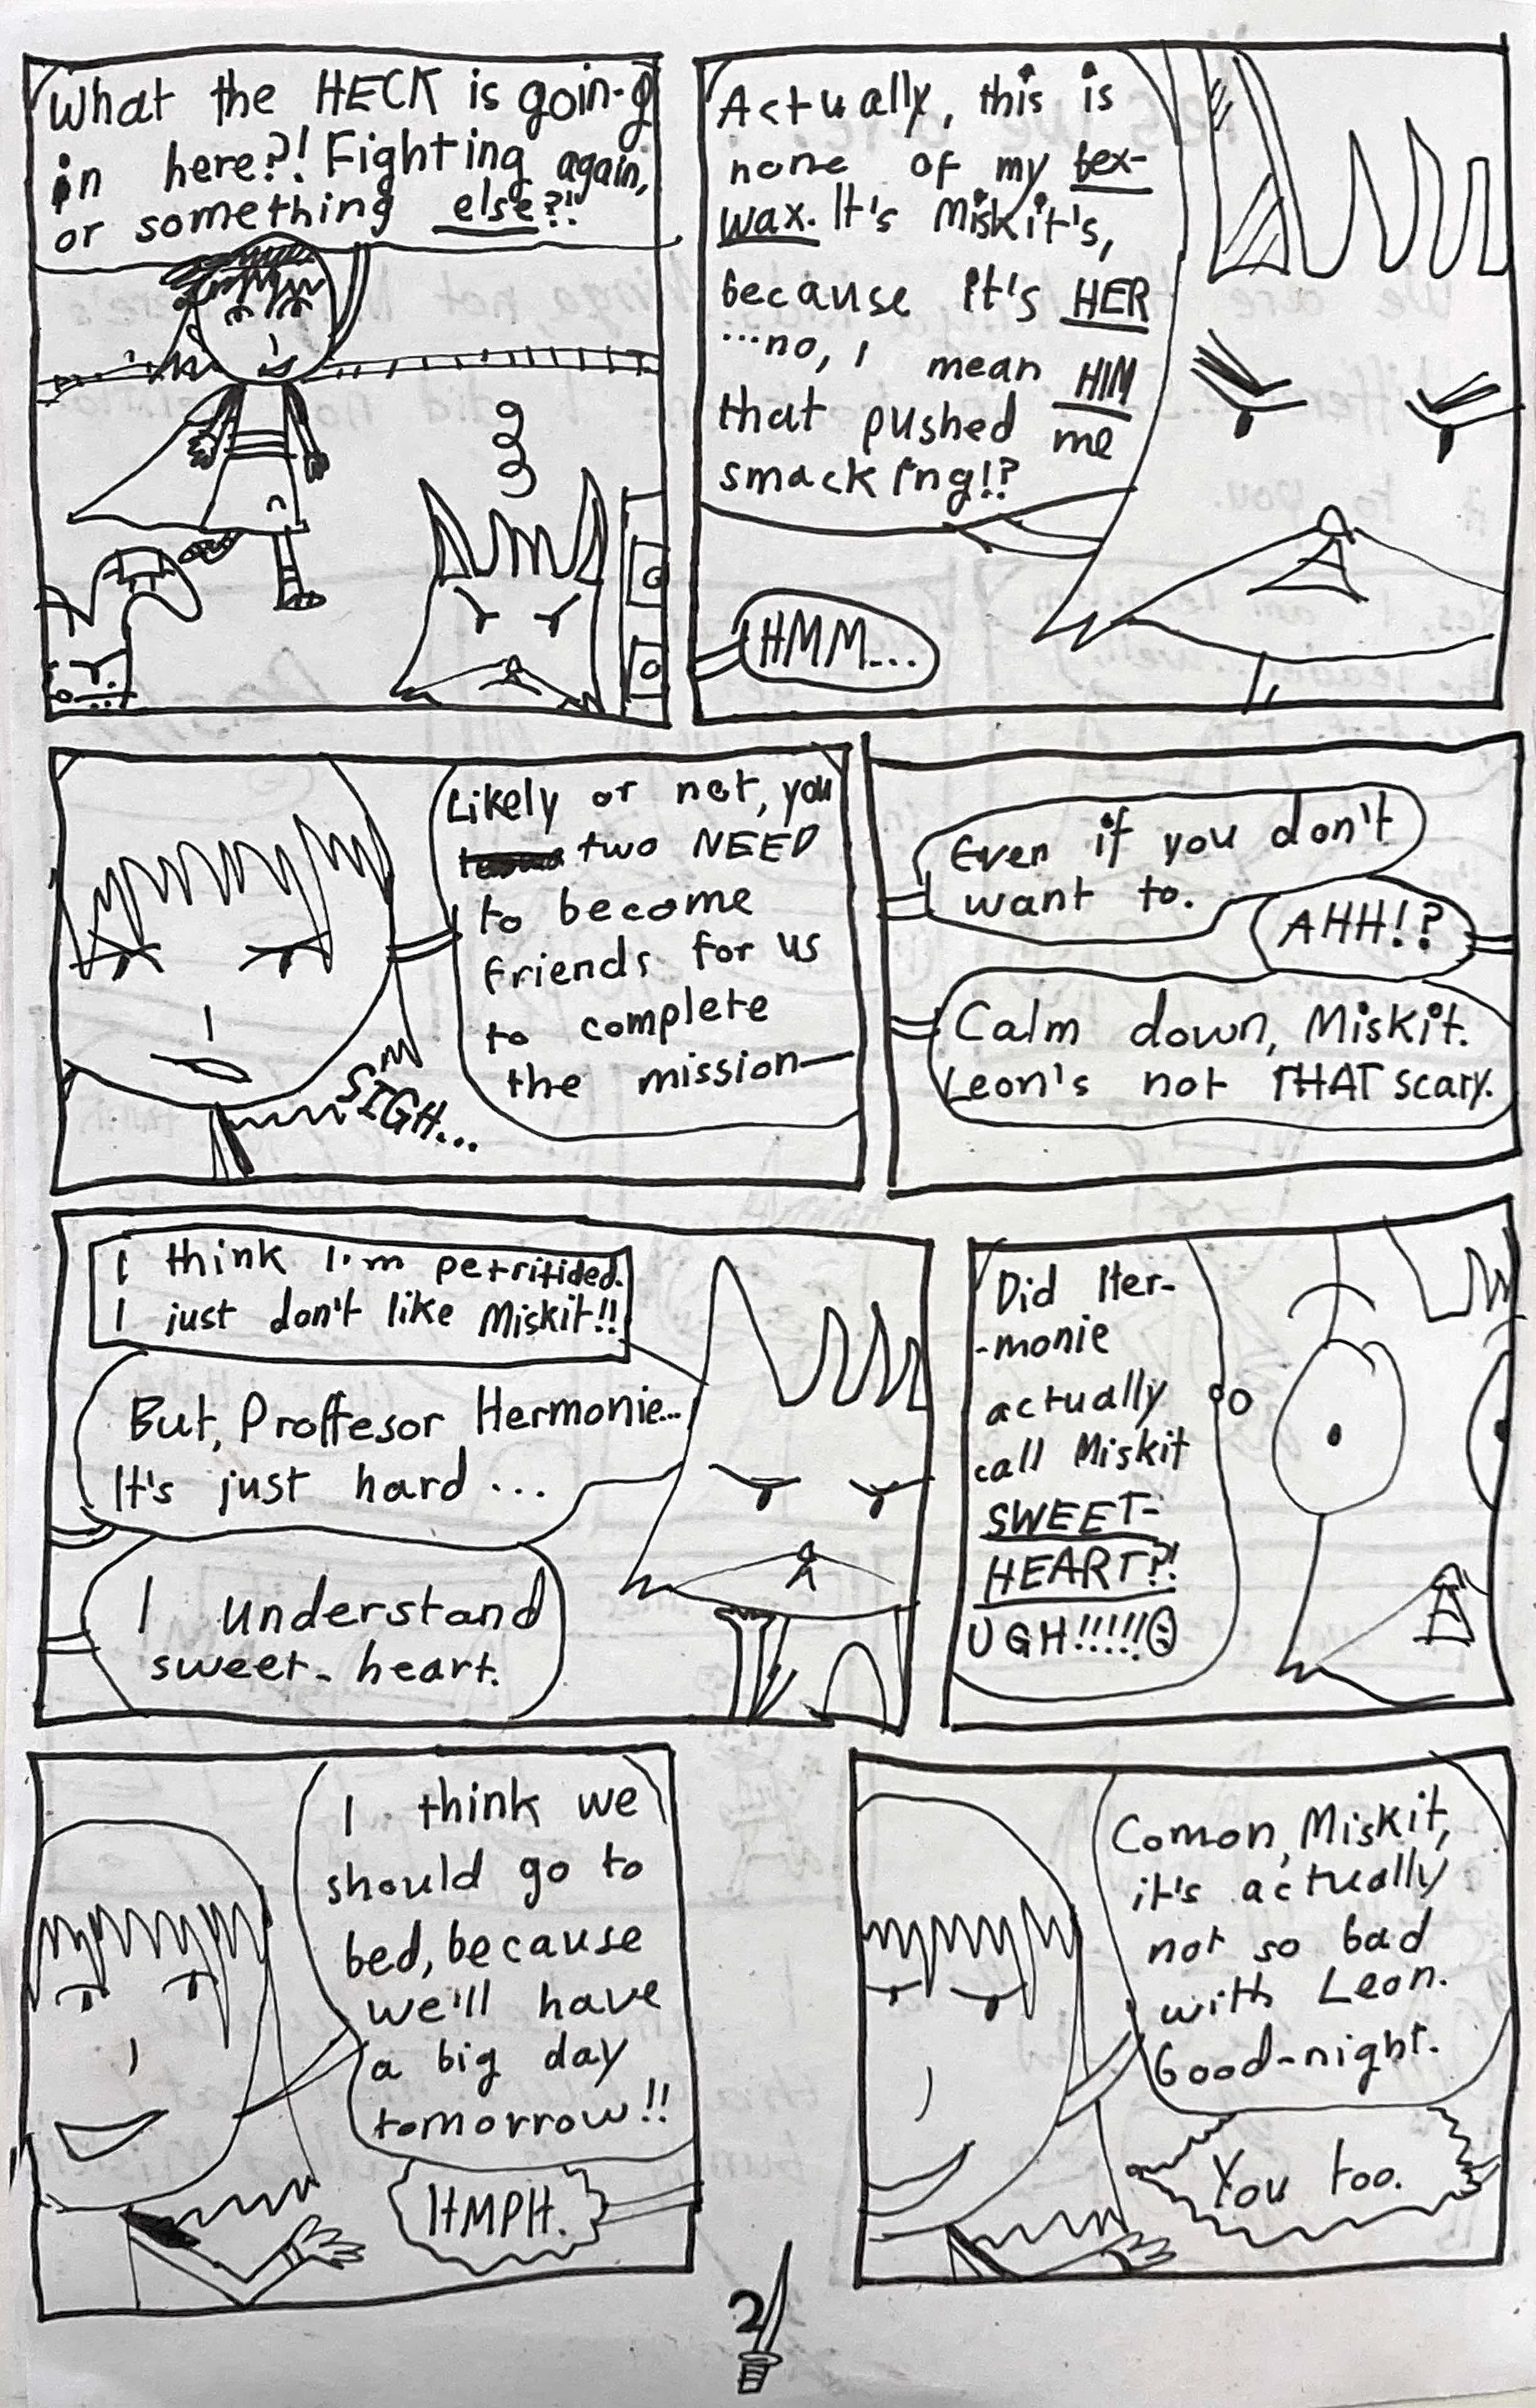 What the HECK is goin-g
in here?! Fighting again,
or something else?!
Actually, this is
none of my bex-
wax. It's Miskit's,
because it's HER
...no, I mean HIM
that pushed me
smacking!?
HMM...
Likely or not, you
two NEED
to become
friends for us
to complete
the mission—
SIGH...
Even if you don't
want to.
AHH!?
Calm down, Miskit.
Leon's not THAT scary.
I think I'm petritided.
I just don't like Miskit!!
But, Proffesor Hermonie...
It's just hard ...
I understand
sweet-heart.
Did Her-
-monie
actually
call Miskit
SWEET-
HEART?!
UGH!!!!!
I think we
should go to
bed, because
we'll have
a big day
tomorrow!!
HMPH.
Comon, Miskit,
it's actually
not so bad
with Leon.
Good-night.
You too.
2